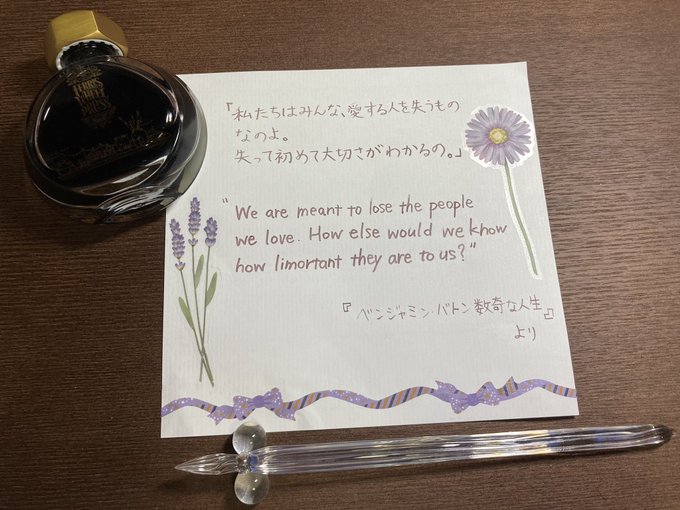 『私たちはみんな、愛する人を失うもの
なのよ。
失って初めて大切さがわかるの。』
“We are meant to lose the people
we love. How else would we know
how limortant they are to us?”
『ベンジャミン・バトン数奇な人生』
より